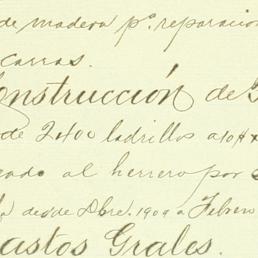 de madera pª. reparacion
carras.
Construcción de G
de 2400 ladrillos a 10 $
al herrero por
desde Dbre. 1909 a Febrero
Gastos Grales.